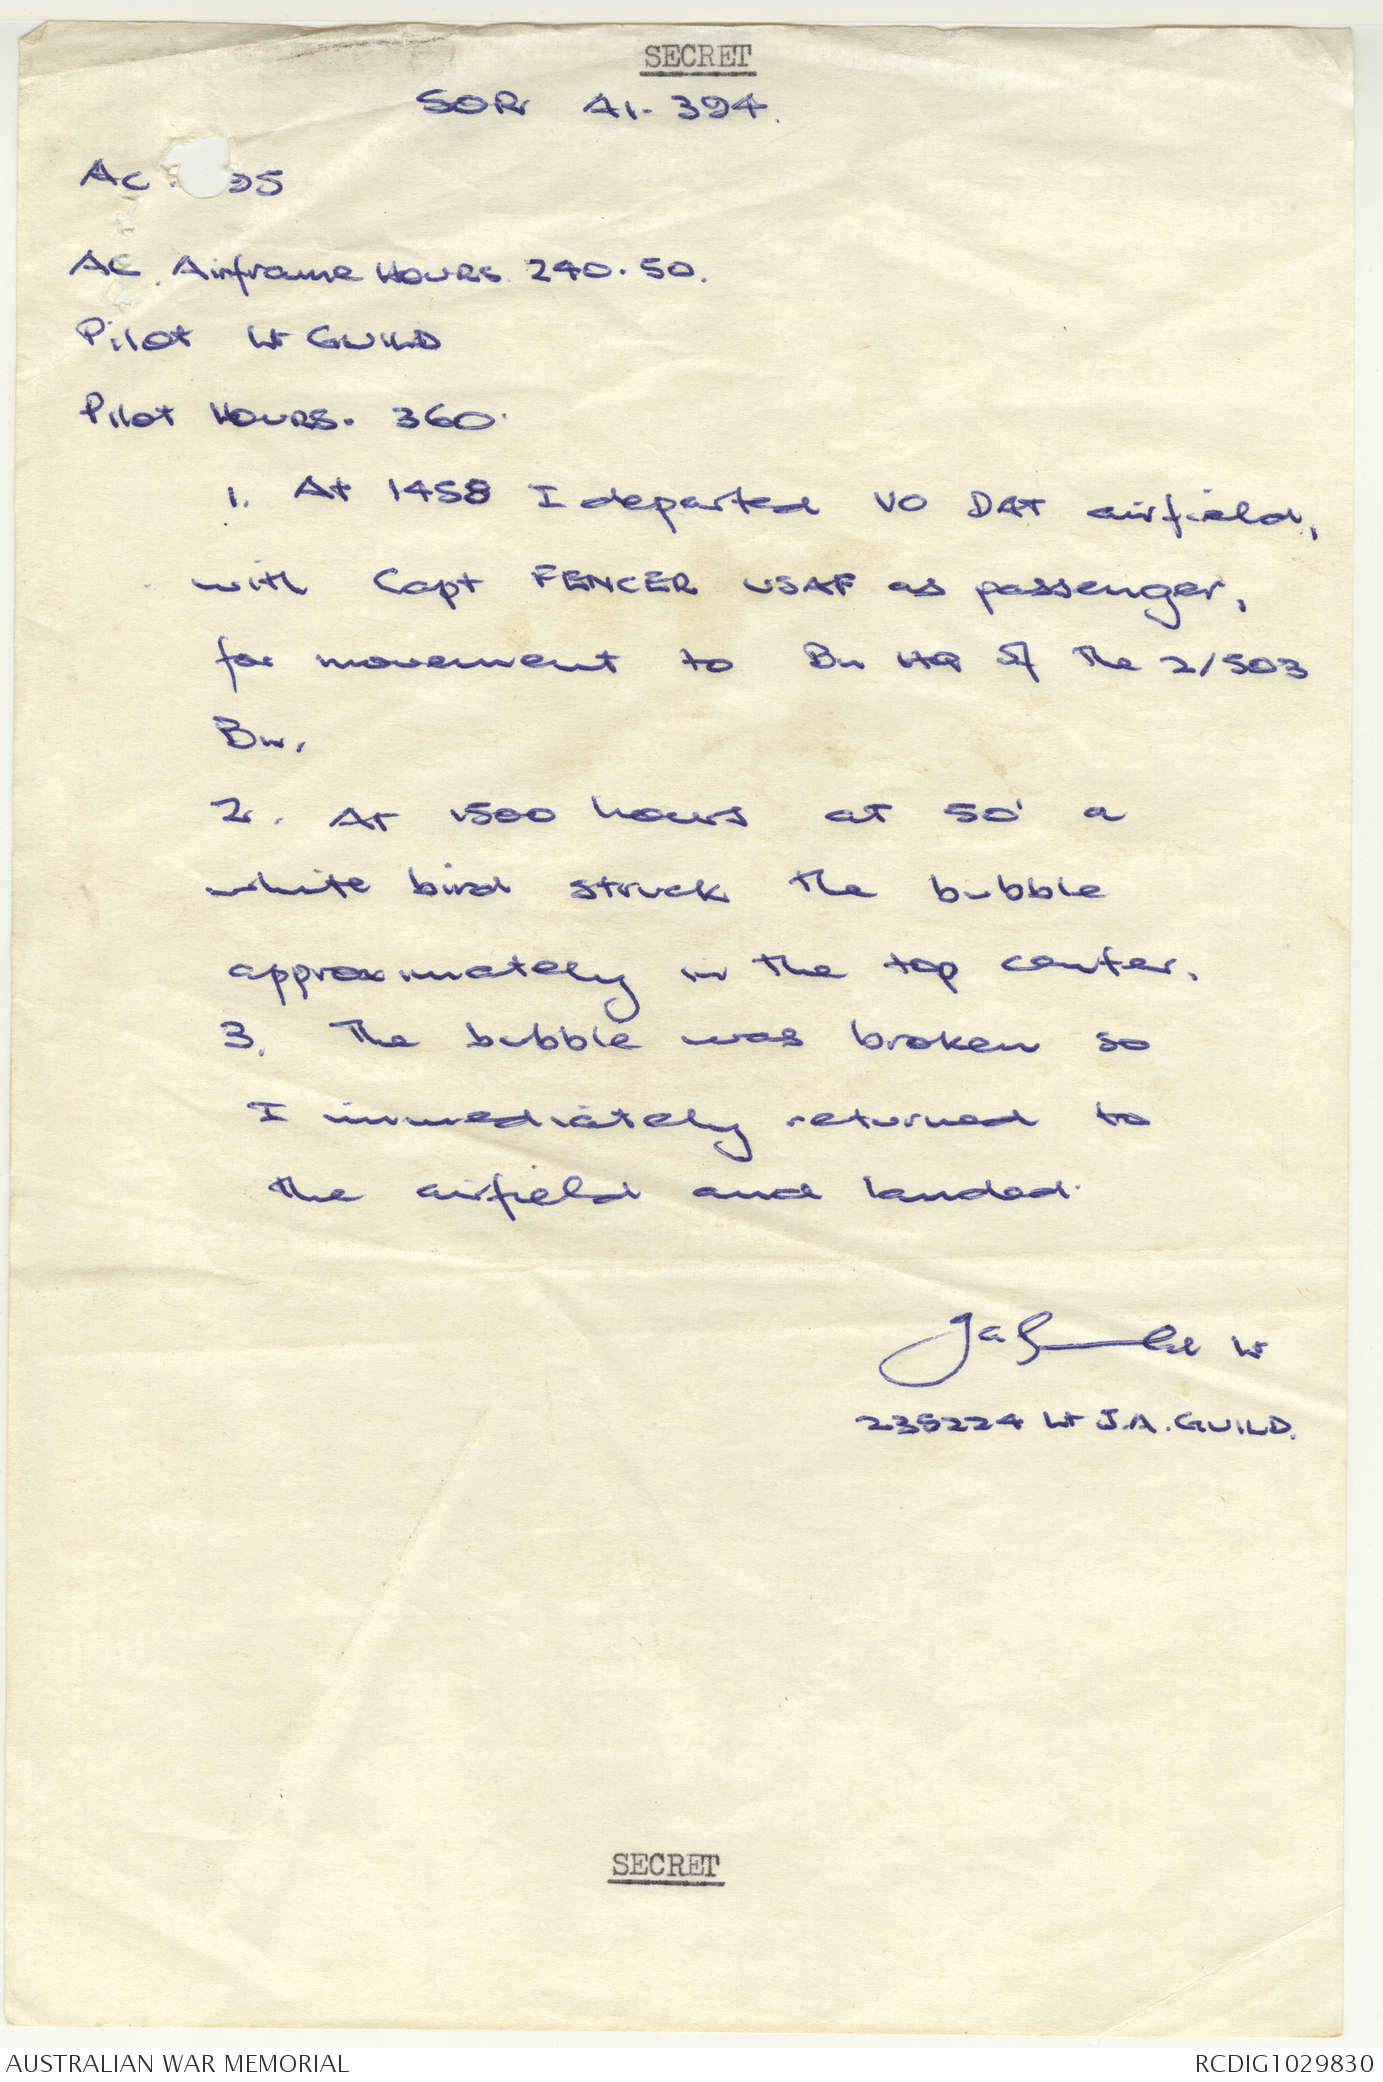 SECRET
SOR A1-394.
AC 95
AC. Airframe HOURS. 240.50.
Pilot Lt GUILD
Pilot HOURS. 360.
1. At 1458 I departed VO DAT airfield,
with Capt FENCER USAF as passenger,
for movement to Bn HQ of the 2/503
Bn.
2. At 1500 hours at 50' a
white bird struck the bubble
approximately in the top center.
3. The bubble was broken so
I immediately returned to
the airfield and landed.
JaGuild Lt
235224 Lt J.A. GUILD.
SECRET
AUSTRALIAN WAR MEMORIAL
RCDIG1029830